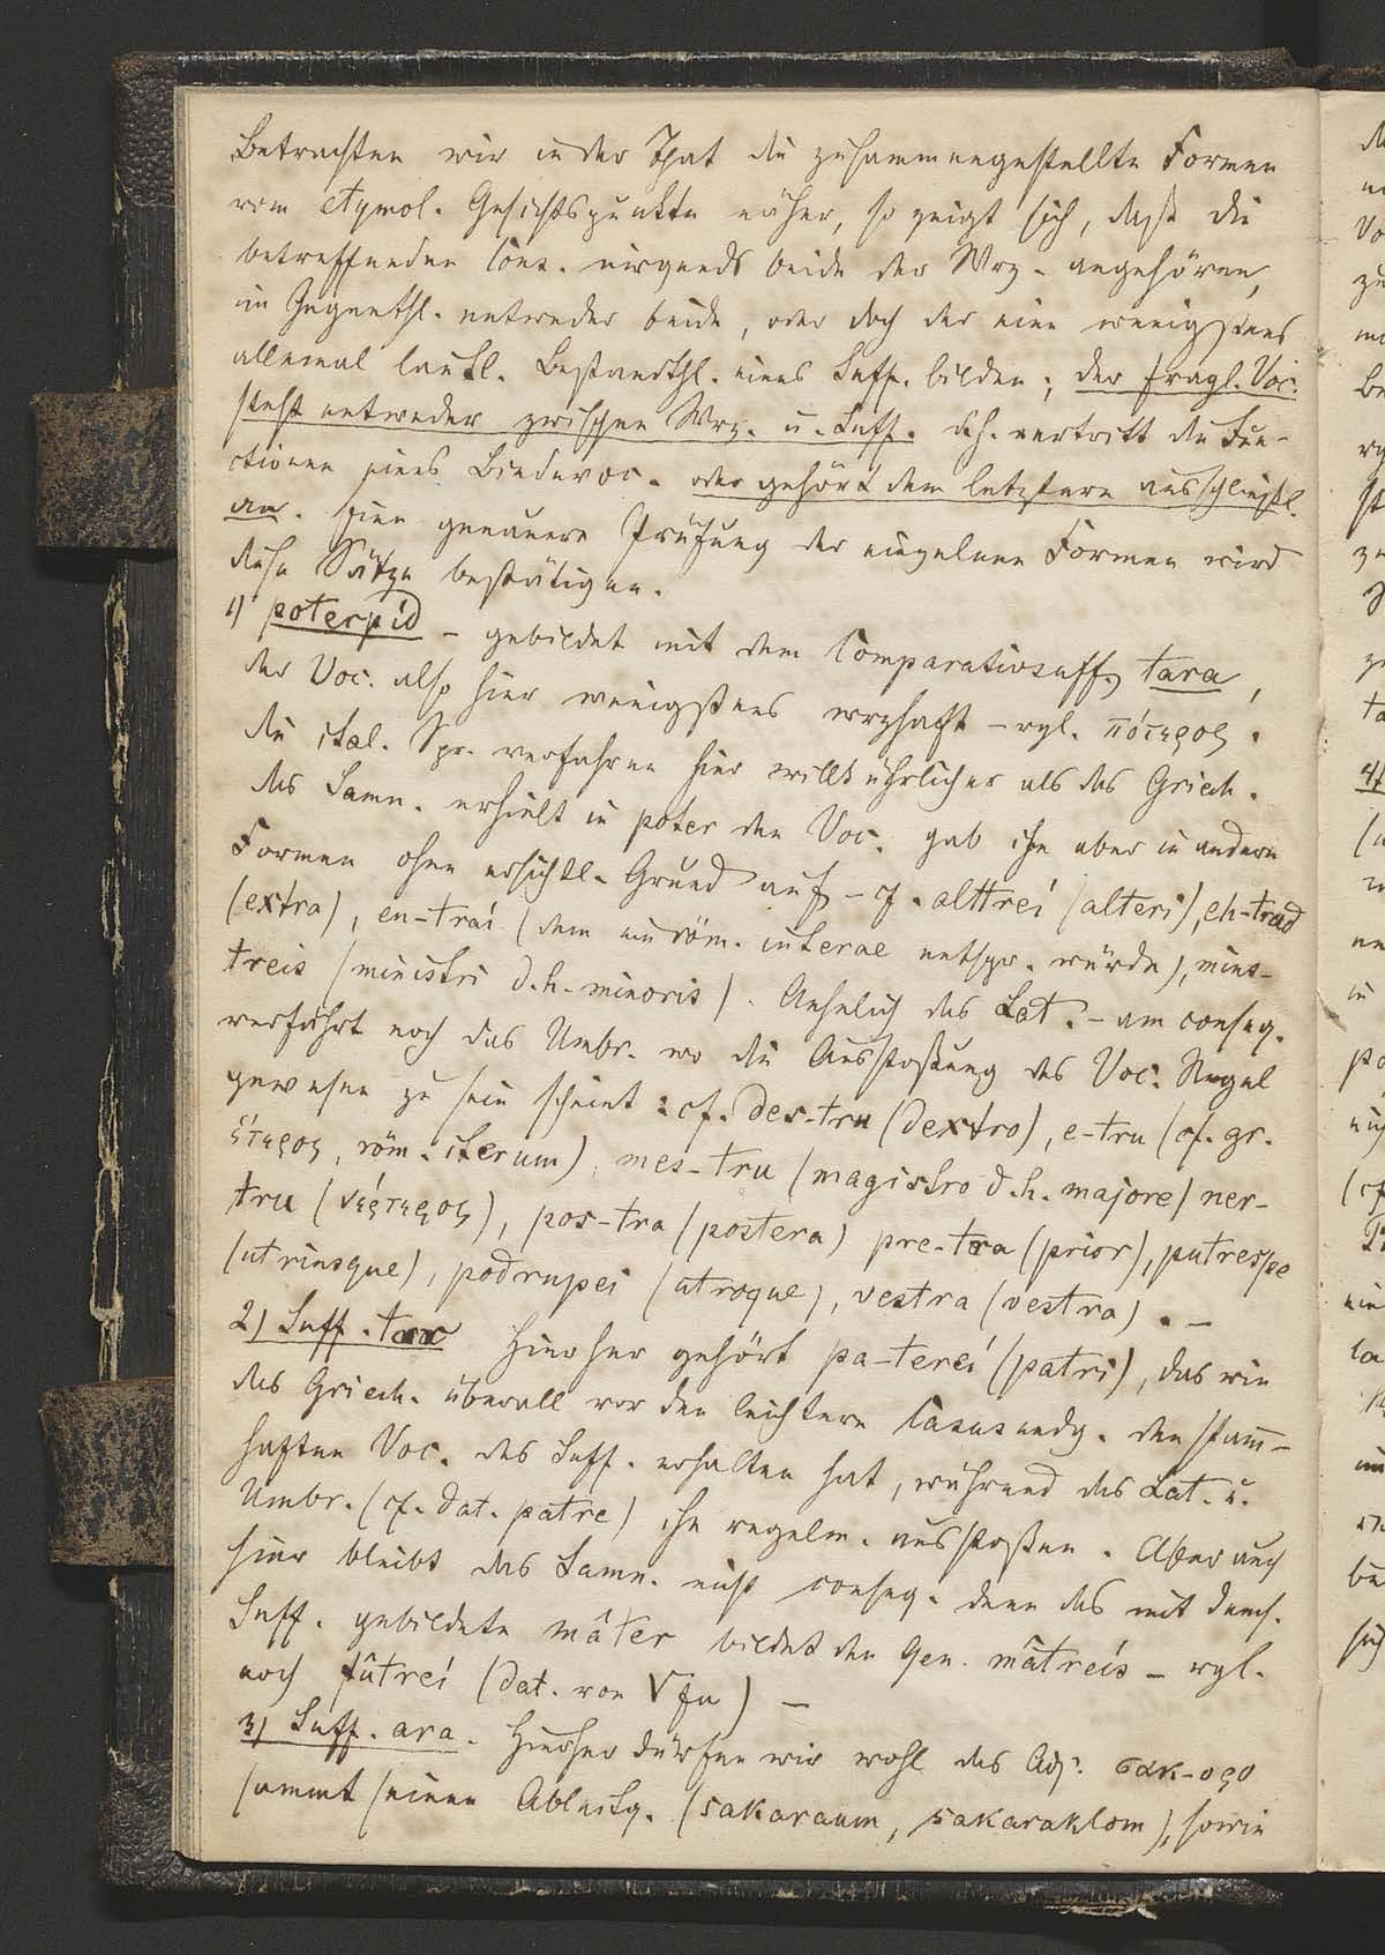 Betrachten wir in der That die zusammengestellte Formen
vom etymol. Gesichtspunkte näher, so zeigt sich, daß die
betreffenden Cons. nirgends beide der Wrz. angehören,
im Gegenthl. entweder beide, oder doch der eine wenigstens
allemal lautl. Bestandthl. eines Suff. bilden; der fragl. Voc.
steht entweder zwischen Wrz. u. Suff. d.h. vertritt die Fun-
ctionen eines Bindevoc. oder gehört dem letztern ausschließl.
an. Eine genauere Prüfung der einzelnen Formen wird
diese Sätze bestätigen.
1) poterpíd – gebildet mit dem Comparativsuff. tara,
der Voc. also hier wenigstens wrzhaft – vgl. πότερος.
die ital. Spr. verfahren hier willkührlicher als das Griech.
das Samn. erhielt in poter den Voc. gab ihn aber in andern
Formen ohne ersichtl. Grund auf – cf. alttreí (alteri), eh-trad
(extra), en-traí (dem ein röm. interae entspr. würde), mins-
treis (ministri d.h. minoris). Aehnlich das Lat. – am conseq.
verfährt noch das Umbr. wo die Ausstoßung des Voc. Regel
gewesen zu sein scheint: cf. des-tru (dextro), e-tru (cf. gr.
ἕτερος, röm. iterum), mes-tru (magistro d.h. majore) ner-
tru (νέρτερος), pos-tra (postera) pre-tra (prior), putrespe
(utriusque), podrupei (utroque), vestra (vestra). –
2) Suff. tar Hierher gehört pa-tereí (patri), das wie
das Griech. überall vor den leichtern Casusendg. den stam̄-
haften Voc. des Suff. erhalten hat, während das Lat. u.
Umbr. (cf. dat. patre) ihn regelm. ausstoßen. Aber auch
hier bleibt das Samn. nicht conseq. denn das mit dems.
Suff. gebildete mâter bildet den Gen. mâtreís – vgl.
noch fûtreí (dat. von √fu) –
3) Suff. ara. Hierher dürfen wir wohl das Adj. σακ-ορο
sammt seinen Ableitg. (sakaraum, sakaraklom), sowie